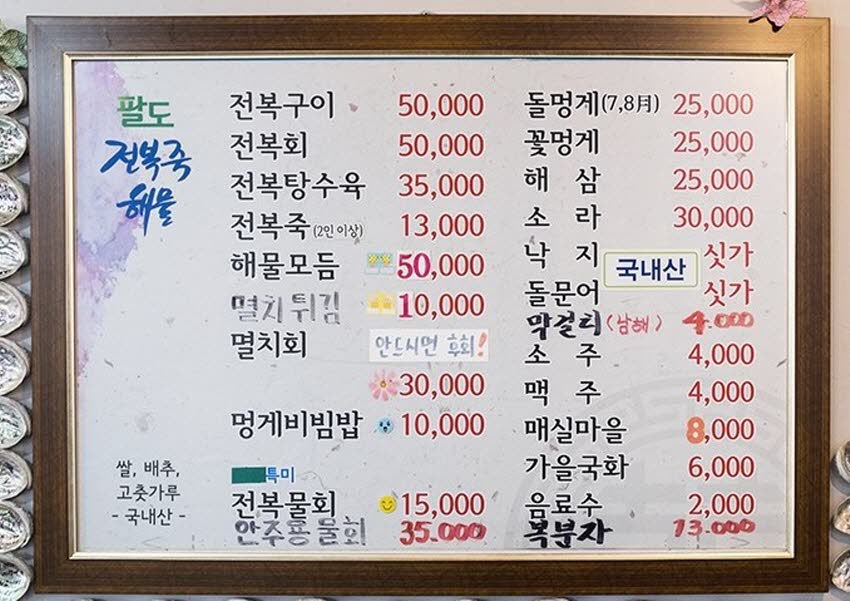 팔도
전복죽
해물
전복구이 50,000
전복회 50,000
전복탕수육 35,000
전복죽(2인 이상) 13,000
해물모듬 50,000
멸치튀김 10,000
멸치회 안드시면 후회!
30,000
멍게비빔밥 10,000
특미
전복물회 15,000
안주용물회 35.000
쌀, 배추,
고춧가루
- 국내산 -
돌멍게(7,8月) 25,000
꽃멍게 25,000
해 삼 25,000
소 라 30,000
낙 지 싯가
국내산
돌문어 싯가
막걸리(남해) 4.000
소 주 4,000
맥 주 4,000
매실마을 8,000
가을국화 6,000
음료수 2,000
복분자 13.000